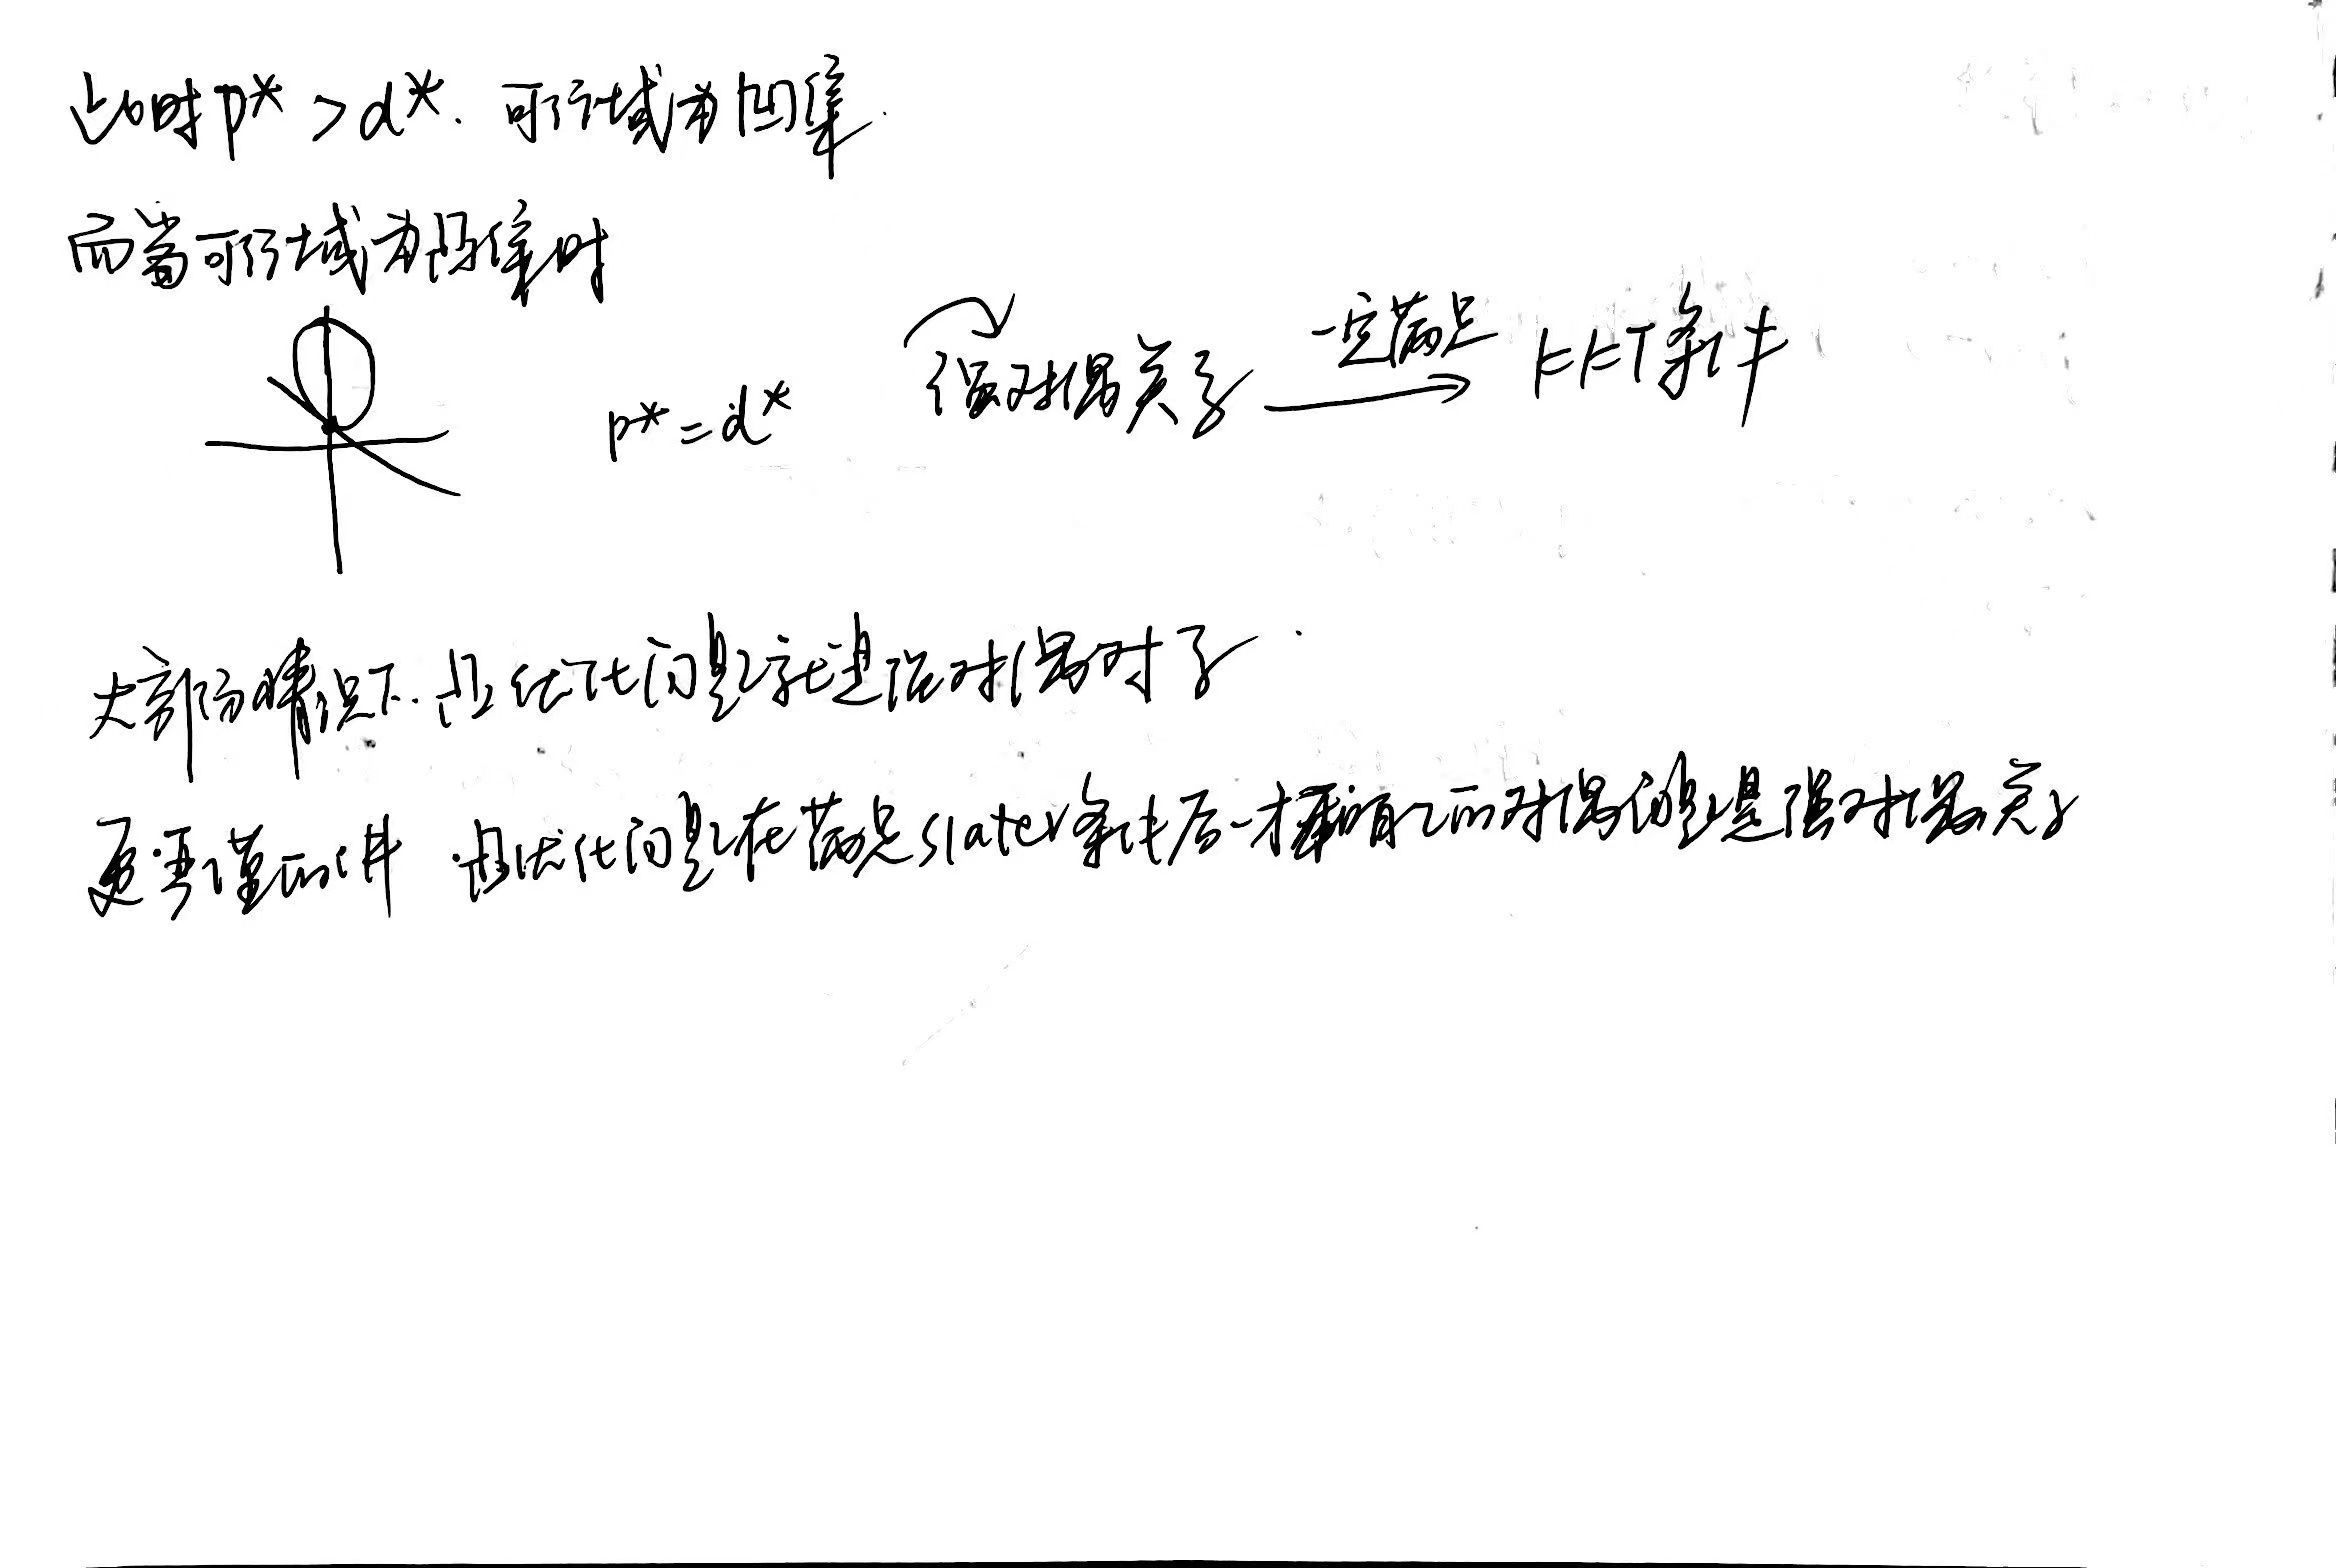 此时 p* > d*. 可行域为凹集.
而当可行域为凸集时
p* = d*
强对偶关系 一定满足 KKT条件
大部分情况下. 凸优化问题就是强对偶对子.
更严谨的讲 凸优化问题在满足slater条件后 对偶问题是强对偶关系